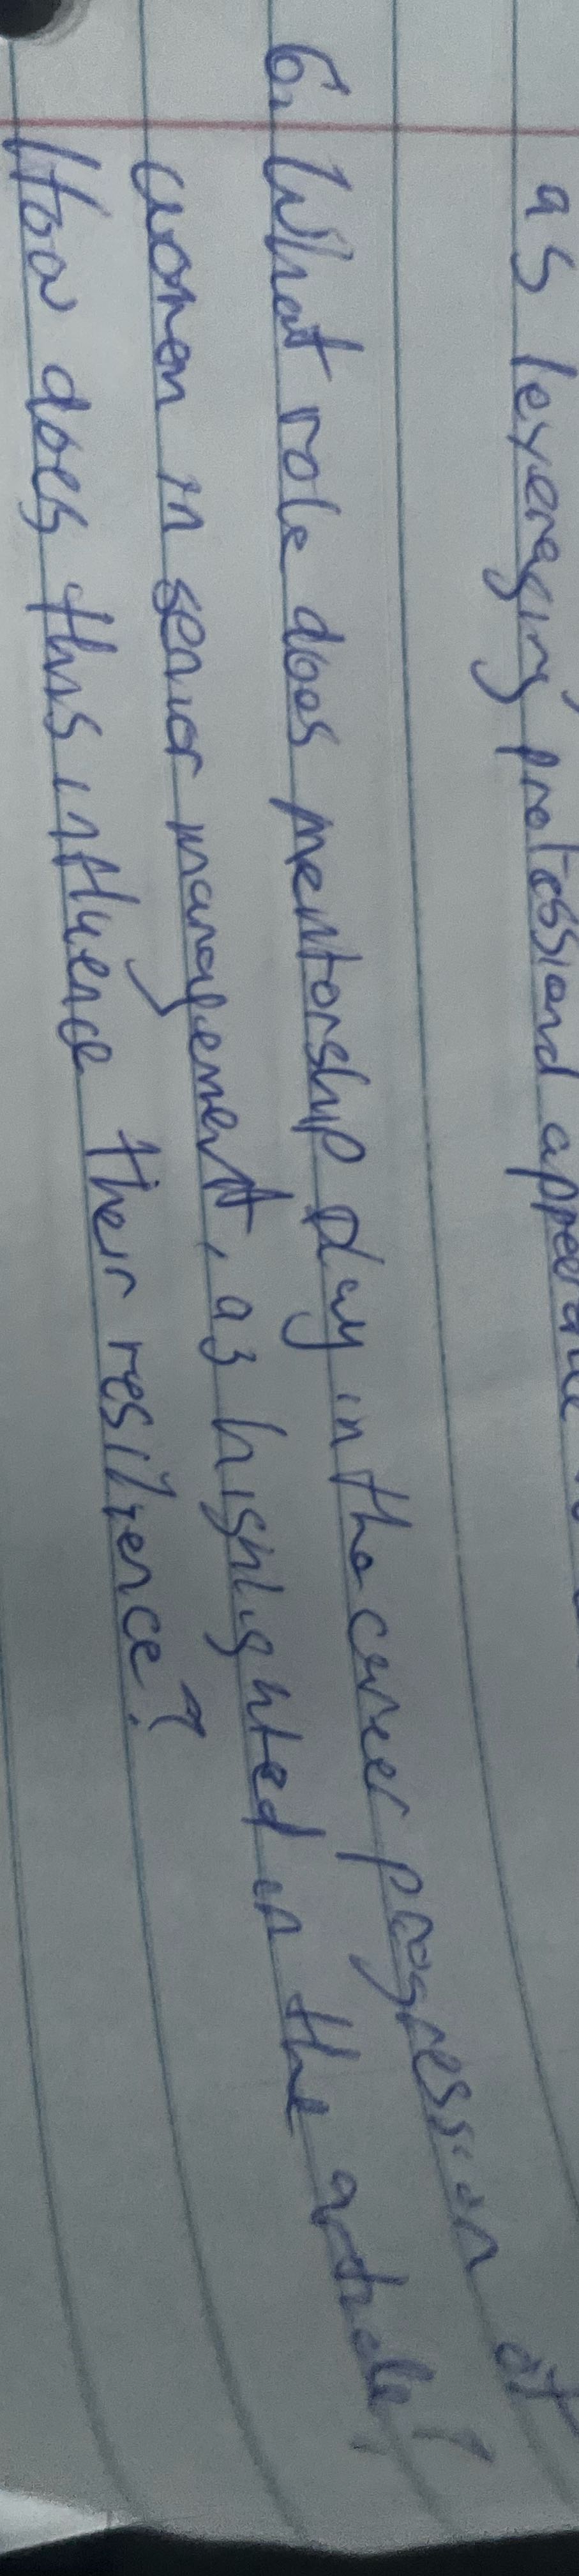 as leveraging professional appearance
6. What role does mentorship play in the career progression of
women in senior management, as highlighted in the article?
How does this influence their resilience?